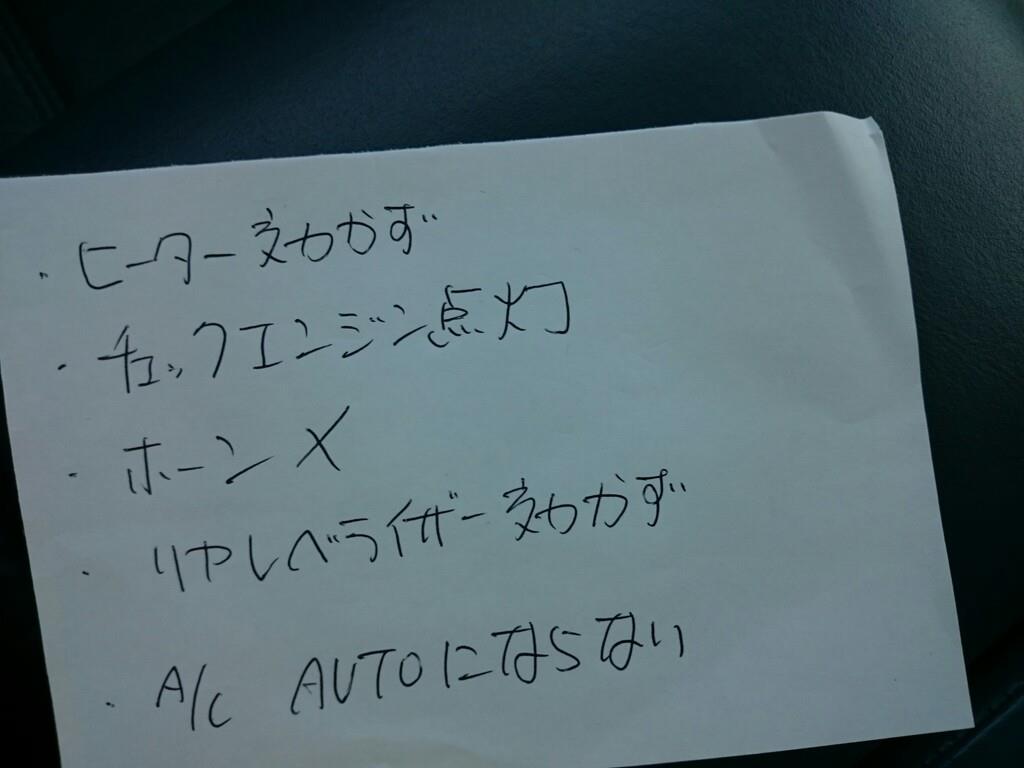 ・ヒーター効かず
・チェックエンジン点灯
・ホーン✕
・リヤレベライザー効かず
・A/C AUTOにならない